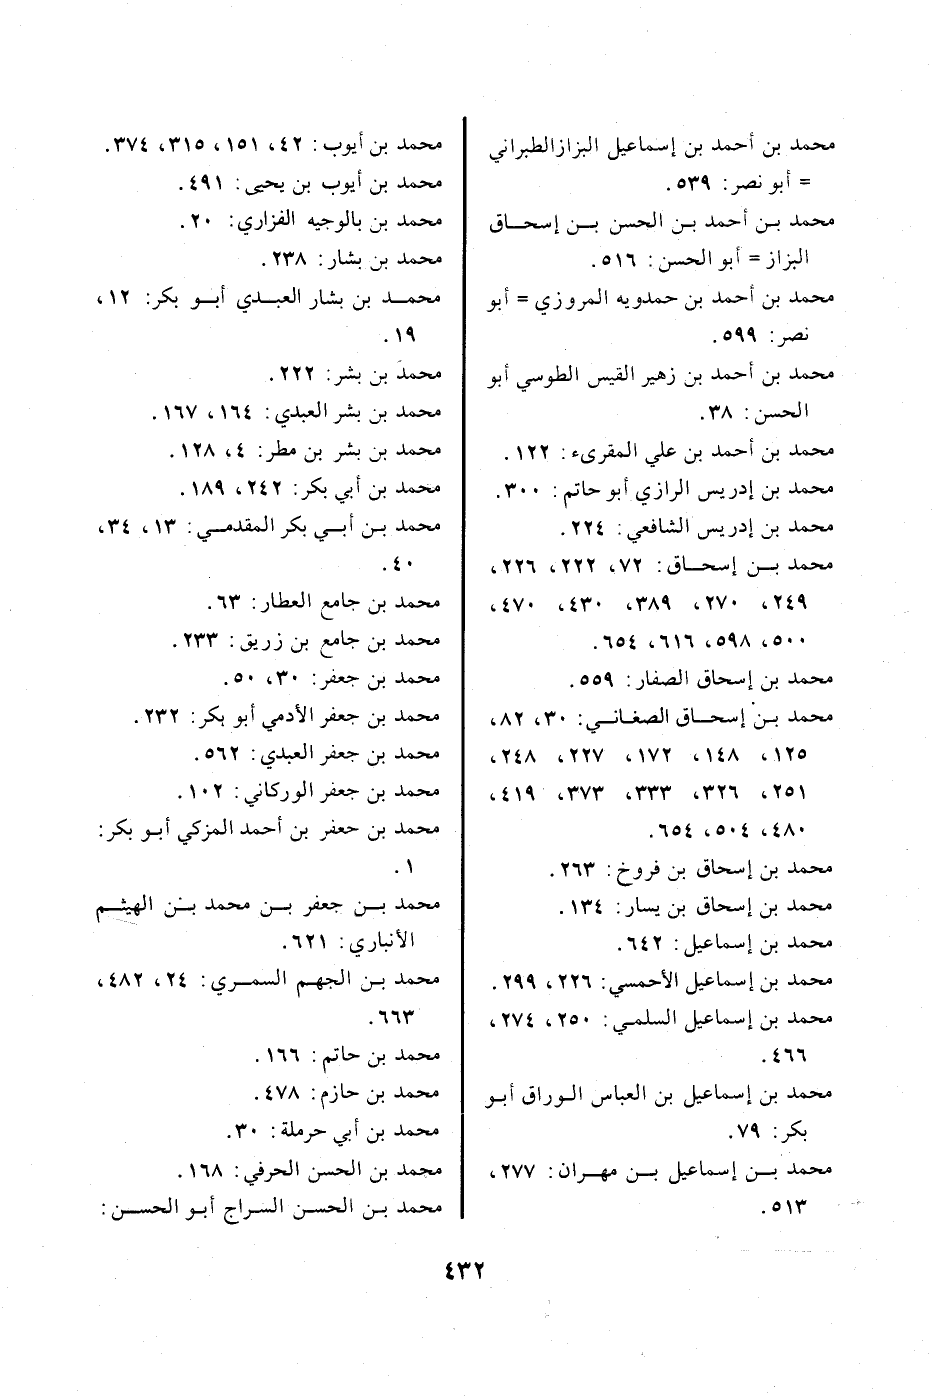 محمد بن أحمد بن إسماعيل البزازالطبراني
= أبو نصر: ٥٣٩.
محمد بن أحمد بن الحسن بن إسحاق
البزاز = أبو الحسن: ٥١٦.
محمد بن أحمد بن حمدويه المروزي = أبو
نصر: ٥٩٩.
محمد بن أحمد بن زهير القيس الطوسي أبو
الحسن: ٣٨.
محمد بن أحمد بن علي المقرىء: ١٢٢.
محمد بن إدريس الرازي أبو حاتم: ٣٠٠.
محمد بن إدريس الشافعي: ٢٢٤.
محمد بن إسحاق: ٧٢، ٢٢٢، ٢٢٦،
٢٤٩، ٢٧٠، ٣٨٩، ٤٣٠، ٤٧٠،
٥٠٠، ٥٩٨، ٦١٦، ٦٥٤.
محمد بن إسحاق الصفار: ٥٥٩.
محمد بن إسحاق الصغاني: ٣٠، ٨٢،
١٢٥، ١٤٨، ١٧٢، ٢٢٧، ٢٤٨،
٢٥١، ٣٢٦، ٣٣٣، ٣٧٣، ٤١٩،
٤٨٠، ٥٠٤، ٦٥٤.
محمد بن إسحاق بن فروخ: ٢٦٣.
محمد بن إسحاق بن يسار: ١٣٤.
محمد بن إسماعيل: ٦٤٢.
محمد بن إسماعيل الأحمسي: ٢٢٦، ٢٩٩.
محمد بن إسماعيل السلمي: ٢٥٠، ٢٧٤،
٤٦٦.
محمد بن إسماعيل بن العباس الوراق أبو
بكر: ٧٩.
محمد بن إسماعيل بن مهران: ٢٧٧،
٥١٣.
محمد بن أيوب: ٤٢، ١٥١، ٣١٥، ٣٧٤.
محمد بن أيوب بن يحيى: ٤٩١.
محمد بن بالوجيه الفزاري: ٢٠.
محمد بن بشار: ٢٣٨.
محمد بن بشار العبدي أبو بكر: ١٢،
١٩.
محمد بن بشر: ٢٢٢.
محمد بن بشر العبدي: ١٦٤، ١٦٧.
محمد بن بشر بن مطر: ٤، ١٢٨.
محمد بن أبي بكر: ٢٤٢، ١٨٩.
محمد بن أبي بكر المقدمي: ١٣، ٣٤،
٤٠.
محمد بن جامع العطار: ٦٣.
محمد بن جامع بن زريق: ٢٣٣.
محمد بن جعفر: ٣٠، ٥٠.
محمد بن جعفر الأدمي أبو بكر: ٢٣٢.
محمد بن جعفر العبدي: ٥٦٢.
محمد بن جعفر الوركاني: ١٠٢.
محمد بن حعفر بن أحمد المزكي أبو بكر:
١.
محمد بن جعفر بن محمد بن الهيثم
الأنباري: ٦٢١.
محمد بن الجهم السمري: ٢٤، ٤٨٢،
٦٦٣.
محمد بن حاتم: ١٦٦.
محمد بن حازم: ٤٧٨.
محمد بن أبي حرملة: ٣٠.
محمد بن الحسن الحرفي: ١٦٨.
محمد بن الحسن السراج أبو الحسن:
٤٣٢